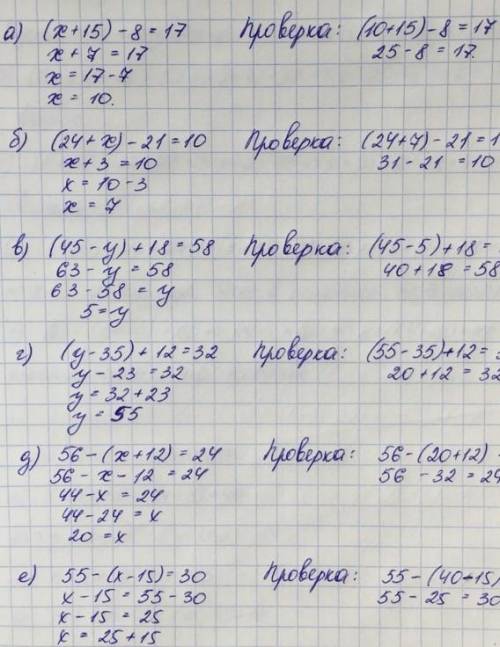 а) (x+15) - 8 = 17 Проверка: (10+15) - 8 = 17
x + 7 = 17 25 - 8 = 17.
x = 17 - 7
x = 10.
б) (24 + x) - 21 = 10 Проверка: (24+7) - 21 = 1
x + 3 = 10 31 - 21 = 10
x = 10 - 3
x = 7
в) (45 - y) + 18 = 58 Проверка: (45 - 5) + 18 =
63 - y = 58 40 + 18 = 58
63 - 58 = y
5 = y
г) (y - 35) + 12 = 32 Проверка: (55 - 35) + 12 =
y - 23 = 32 20 + 12 = 32
y = 32 + 23
y = 55
д) 56 - (x + 12) = 24 Проверка: 56 - (20+12)
56 - x - 12 = 24 56 - 32 = 24
44 - x = 24
44 - 24 = x
20 = x
е) 55 - (x - 15) = 30 Проверка: 55 - (40 - 15)
x - 15 = 55 - 30 55 - 25 = 30
x - 15 = 25
x = 25 + 15